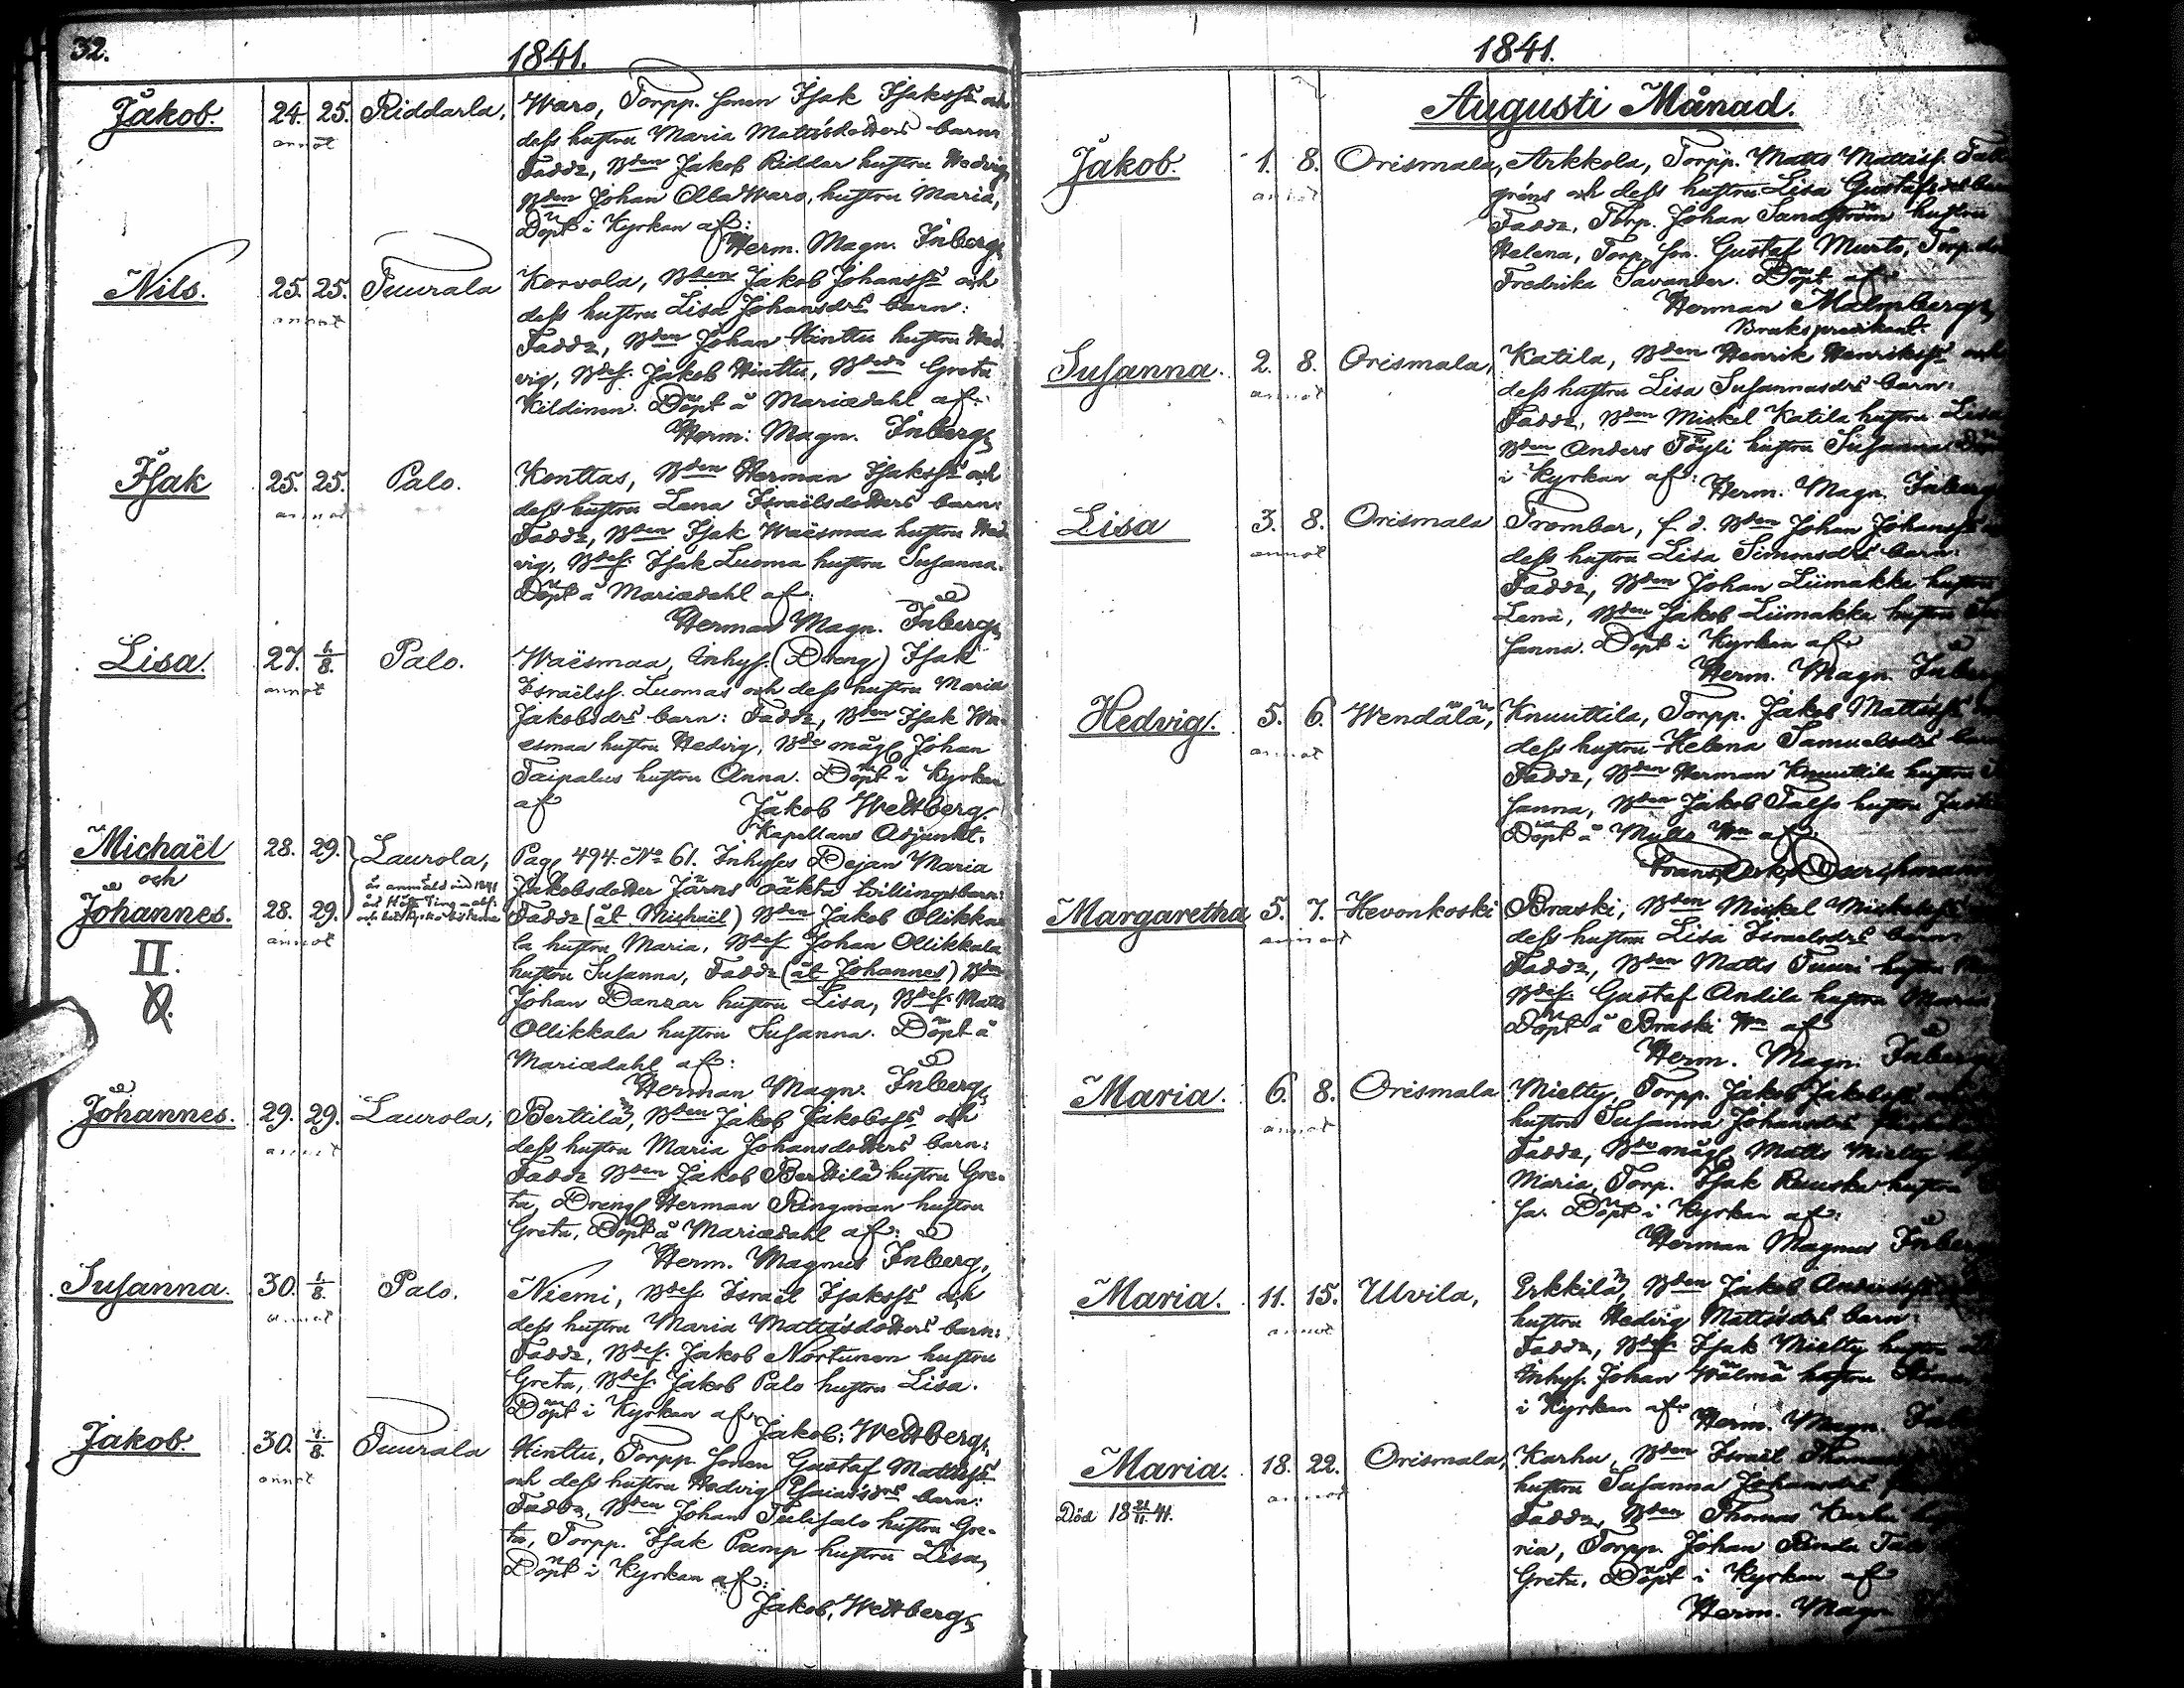 32.
1841.
Jakob. 24. 25. Riddarla, Waro, Torpp. sonen Isak Isakss. och
annot
dess hustru Maria Mattsdotters barn
Fadd., Bden Jakob Riddar hustru Hedvig
Bden Johan Olla Waro, hustru Maria,
Döpt i Kyrkan af:
Herm. Magn. Inberg,
Nils. 25. 25. Tuurala Korvola, Bden Jakob Johanss. och
annot
dess hustru Lisa Johansdrs barn:
Fadd., Bden Johan Hinttu hustru Hed
vig, Bdes. Jakob Hinttu, Greta
Kildinen. Döpt å Mariædahl af:
Herm: Magn. Inberg,
Isak 25. 25. Palo. Konttas, Bden Herman Isakss. och
annot
dess hustru Lena Israëlsdotters barn:
Fadd., Bden Isak Waësmaa hustru Hed
vig, Bdes. Isak Luoma hustru Susanna.
Döpt å Mariædahl af:
Herman Magn. Inberg,
Lisa. 27. 1/8. Palo. Waësmaa, Inhys. (Dreng) Isak
annot
Israëlss. Luomas och dess hustru Maria
Jakobsdrs barn: Fadd., Bden Isak Wa-
esmaa hustru Hedvig, Bde måg Johan
Taipalus hustru Anna. Döpt i Kyrkan
af Jakob Wettberg.
Kapellans Adjunkt.
Michaël 28. 29. Laurola, Pag. 494. No 61. Inhyses Dejan Maria
och
Jakobsdotter Järns oäkta tillingsbarn:
Johannes. 28. 29. Fadd. (åt Michaël) Bden Jakob Ollikka-
annot
la hustru Maria, Bdes. Johan Ollikkala
II. hustru Susanna, Fadd. (åt Johannes) Bden
Johan Danzar hustru Lisa, Bdes. Matts
Ollikkala hustru Susanna. Döpt å
Mariædahl af:
Herman Magn. Inberg,
Johannes. 29. 29. Laurola, Berttilä, Bden Jakob Jakobss. och
annot
dess hustru Maria Johansdotters barn:
Fadd. Bden Jakob Berttilä hustru Gre-
ta, Dreng Herman Ringman hustru
Greta, Döpt å Mariædahl af:
Herm. Magnus Inberg,
Susanna. 30. 1/8. Palo. Niemi, Bdes. Israël Isakss. och
annot
dess hustru Maria Mattsdotters barn:
Fadd., Bdes. Jakob Nortunen hustru
Greta, Bdes. Jakob Palo hustru Lisa.
Döpt i Kyrkan af
Jakob. Wettberg,
Jakob. 30. 1/8. Tuurala Hinttu, Torpp. sonen Gustaf Mattss.
annot
och dess hustru Hedvig Esaiæsdrs barn:
Fadd., Bden Johan Tulisalo hustru Gre-
ta, Torpp. Isak Pump hustru Lisa,
Döpt i Kyrkan af:
Jakob. Wettberg,
1841.
Augusti Månad.
Jakob. 1. 8. Orismala, Arkkola, Torpp. Matts Mattss.
annot
gréns och dess hustru Lisa Gustafsdrs
Fadd., Torp. Johan Sandström hustru
Helena, Torp. son. Gustaf Murto, Torp.
Fredrika Savander. Döpt af
Herman Malmberg,
Brukspredikant.
Susanna. 2. 8. Orismala, Katila, Bden Henrik Henrikss. och
annot
dess hustru Lisa Susannasdrs barn:
Fadd., Bden Mickel Katila hustru Lisa
Bden Anders Töyli hustru Susanna.
i Kyrkan af: Herm. Magn. Inberg
Lisa 3. 8. Orismala Trombar, f. d. Bden Johan Johanss.
annot
dess hustru Lisa Simonsdrs barn:
Fadd., Bden Johan Liimakka hustru
Lena, Bden Jakob Liimakka hustru
sanna. Döpt i Kyrkan af
Herm. Magn. Inberg
Hedvig. 5. 6. Wendälä, Knuuttila, Torpp. Jakob Mattss.
annot
dess hustru Helena Samuelsdrs
Fadd., Bden Herman Knuuttila hustru
sanna, Bden Jakob Talso hustru
Döpt å af
Margaretha 5. 7. Hevonkoski Braski, Bden Mickel Mickelss.
annot
dess hustru Lisa Israelsdrs barn:
Fadd., Bden Matts Tuuri hustru
Bdes. Gustaf Andila hustru Maria
Döpt å Braski af
Herm. Magn. Inberg
Maria. 6. 8. Orismala Mielty, Torpp. Jakob Jakobss.
annot
hustru Susanna Johansdrs
Fadd., Bde måg Matts Mielty
Maria, Torp. Isak Ruuska hustru
sa. Döpt i Kyrkan af:
Herman Magnus Inberg
Maria. 11. 15. Ulvila, Erkkilä, Bden Jakob Anderss.
annot
hustru Hedvig Mattsdrs barn:
Fadd., Bdes. Isak Mielty hustru
Inhys. Johan Wälmä hustru
i Kyrkan af Herm. Magn.
Maria. 18. 22. Orismala, Karhu, Bden Israël
annot
hustru Susanna Johansdrs
Död 18 21/11 41. Fadd., Bden Thomas Karhu
ria, Torpp. Johan
Greta. Döpt i Kyrkan af
Herm. Magn